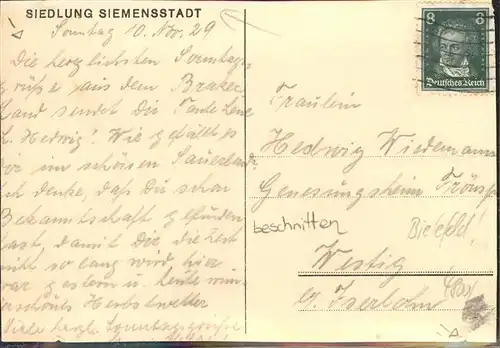 SIEDLUNG SIEMENSSTADT
Sonntag 10. Nov. 29
Die herzlichsten Sonntags-
grüße aus dem
Land sendet Dir Tante Lene
L. Hedwig! Wie gefällt es
Dir im schönen Sauerland
Ich denke, daß Du schon
Bekanntschaft gefunden
hast, damit Dir die Zeit
nicht so lang wird hier
war gestern u. heute
Herbstwetter
Viele herzl. Sonntagsgrüße
8 8
Deutsches Reich
Fräulein
Hedwig Wiedemann
Genesungsheim
beschnitten
Bielefeld!
Westig
b. Iserlohn